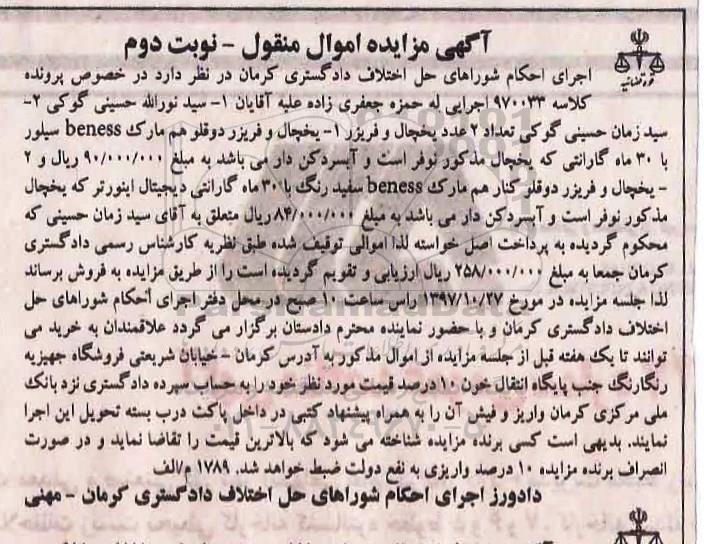 آگهی مزایده اموال منقول - نوبت دوم
قوه قضائیه
اجرای احکام شوراهای حل اختلاف دادگستری کرمان در نظر دارد در خصوص پرونده
کلاسه ۹۷۰۰۳۳ اجرایی له حمزه جعفری زاده علیه آقایان ۱- سید نورالله حسینی گوکی ۲-
سید زمان حسینی گوکی تعداد ۲ عدد یخچال و فریزر ۱- یخچال و فریزر دوقلو هم مارک beness سیلور
با ۳۰ ماه گارانتی که یخچال مذکور نوفر است و آبسردکن دار می باشد به مبلغ ۹۰/۰۰۰/۰۰۰ ریال و ۲
- یخچال و فریزر دوقلو کنار هم مارک beness سفید رنگ با ۳۰ ماه گارانتی دیجیتال اینورتر که یخچال
مذکور نوفر است و آبسردکن دار می باشد به مبلغ ۸۴/۰۰۰/۰۰۰ ریال متعلق به آقای سید زمان حسینی که
محکوم گردیده به پرداخت اصل خواسته لذا اموالی توقیف شده طبق نظریه کارشناس رسمی دادگستری
کرمان جمعا به مبلغ ۲۵۸/۰۰۰/۰۰۰ ریال ارزیابی و تقویم گردیده است را از طریق مزایده به فروش برساند
لذا جلسه مزایده در مورخ ۱۳۹۷/۱۰/۲۷ راس ساعت ۱۰ صبح در محل دفتر اجرای احکام شوراهای حل
اختلاف دادگستری کرمان و با حضور نماینده محترم دادستان برگزار می گردد علاقمندان به خرید می
توانند تا یک هفته قبل از جلسه مزایده از اموال مذکور به آدرس کرمان - خیابان شریعتی فروشگاه جهیزیه
رنگارنگ جنب پایگاه انتقال خون ۱۰ درصد قیمت مورد نظر خود را به حساب سپرده دادگستری نزد بانک
ملی مرکزی کرمان واریز و فیش آن را به همراه پیشنهاد کتبی در داخل پاکت درب بسته تحویل این اجرا
نمایند. بدیهی است کسی برنده مزایده شناخته می شود که بالاترین قیمت را تقاضا نماید و در صورت
انصراف برنده مزایده ۱۰ درصد واریزی به نفع دولت ضبط خواهد شد. ۱۷۸۹ م/الف
دادورز اجرای احکام شوراهای حل اختلاف دادگستری کرمان - مهنی